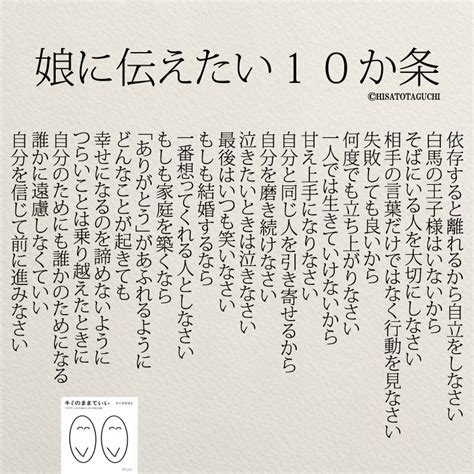 娘に伝えたい１０か条
©HISATOTAGUCHI
依存すると離れるから自立なさい
白馬の王子様はいないから
そばにいる人を大切にしなさい
相手の言葉だけではなく行動を見なさい
失敗しても良いから
何度でも立ち上がりなさい
一人では生きていけないから
甘え上手になりなさい
自分と同じ人を引き寄せるから
自分を磨き続けなさい
泣きたいときは泣きなさい
最後はいつも笑いなさい
もしも結婚するなら
一番想ってくれる人としなさい
もしも家庭を築くなら
「ありがとう」があふれるように
どんなことが起きても
幸せになるのを諦めないように
つらいことは乗り越えたときに
自分のためにも誰かのためになる
誰かに遠慮しなくていい
自分を信じて前に進みなさい
キミのままでいい